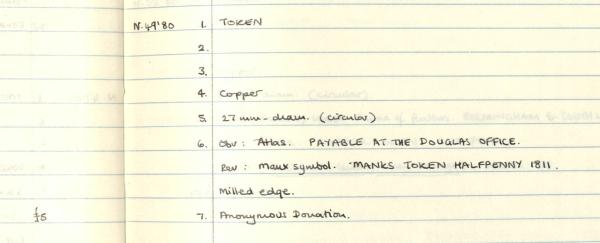 N.49'80 1. TOKEN
2.
3.
4. Copper
5. 27 mm - diam. (circular)
6. Obv: Atlas. PAYABLE AT THE DOUGLAS OFFICE.
Rev: Manx symbol. MANKS TOKEN HALFPENNY 1811.
Milled edge.
£5 7. Anonymous Donation.